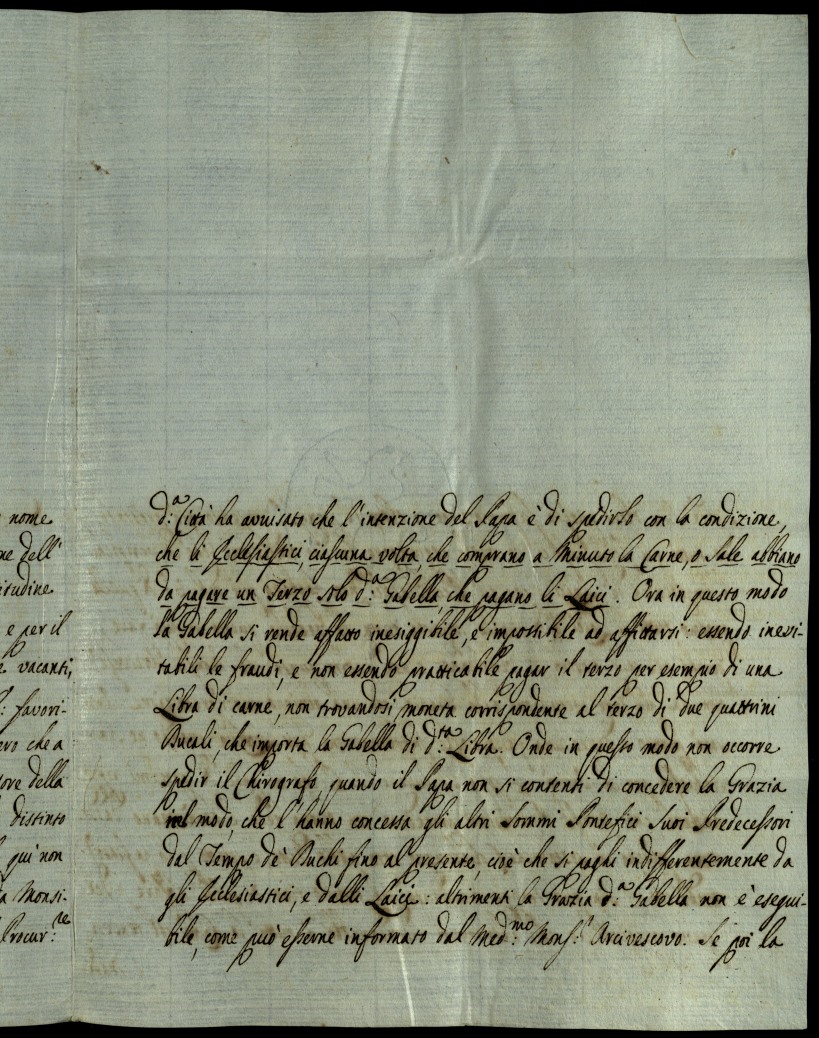 nome
ne dell'
itudine
e per il
e vacanti,
: favori-
ero che a
tore della
distinto
qui non
a Monsi-
Procur:re
d:a Città ha avvisato che l'intenzione del Papa è di spedirlo con la condizione,
che li Ecclesiastici, ciascuna volta, che comprano a Minuto la Carne, o Sale abbiano
da pagare un Terzo solo d:a Gabella, che pagano li Laici. Ora in questo modo
la Gabella si rende affatto inesiggibile, e impossibile ad affittarsi: essendo inevi-
tabili le fraudi, e non essendo pratticabile pagar il terzo per esempio di una
Libra di carne, non trovandosi moneta corrispondente al terzo di due quattrini
Ducali, che importa la Gabella di d:ta Libra. Onde in questo modo non occorre
spedir il Chirografo, quando il Papa non si contenti di concedere la Grazia
nel modo, che l'hanno concessa gli altri Sommi Pontefici Suoi Predecessori
dal Tempo dè Duchi fino al presente, cioè che si paghi indifferentemente da
gli Ecclesiastici, e dalli Laici: altrimenti la Grazia d:a Gabella non è esegui-
bile, come può esserne informato dal Med:mo Mons:r Arcivescovo. Se poi la